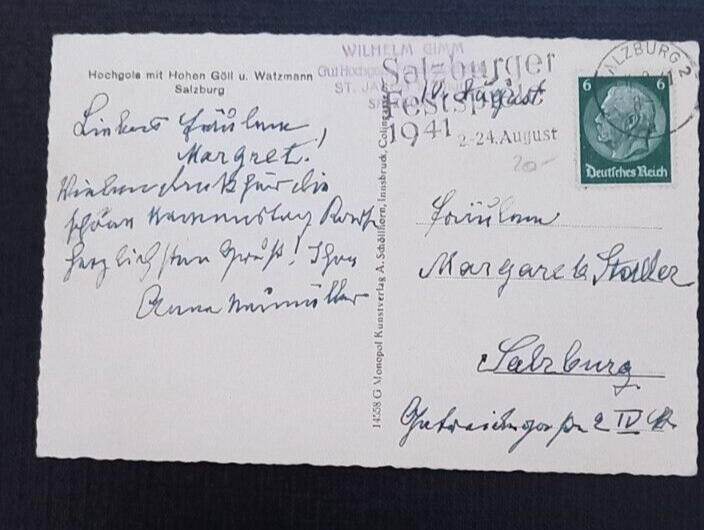 Hochgols mit Hohen Göll u. Watzmann
Salzburg
Liebes Fräulein
Margret!
Vielen Dank für die
schöne Namenstag Karte
herzlichsten Gruß! Ihre
Anna Neumüller
14558 G Monopol Kunstverlag A. Schöllhorn, Innsbruck, Colingasse
WILHELM GIMM
Gut Hochg
ST. JA
Salzburger
Festspiele
1941 2.-24. August
10. August
SALZBURG 2
6 6
Deutsches Reich
20.-
Fräulein
Margarete Staller
Salzburg
2 IV